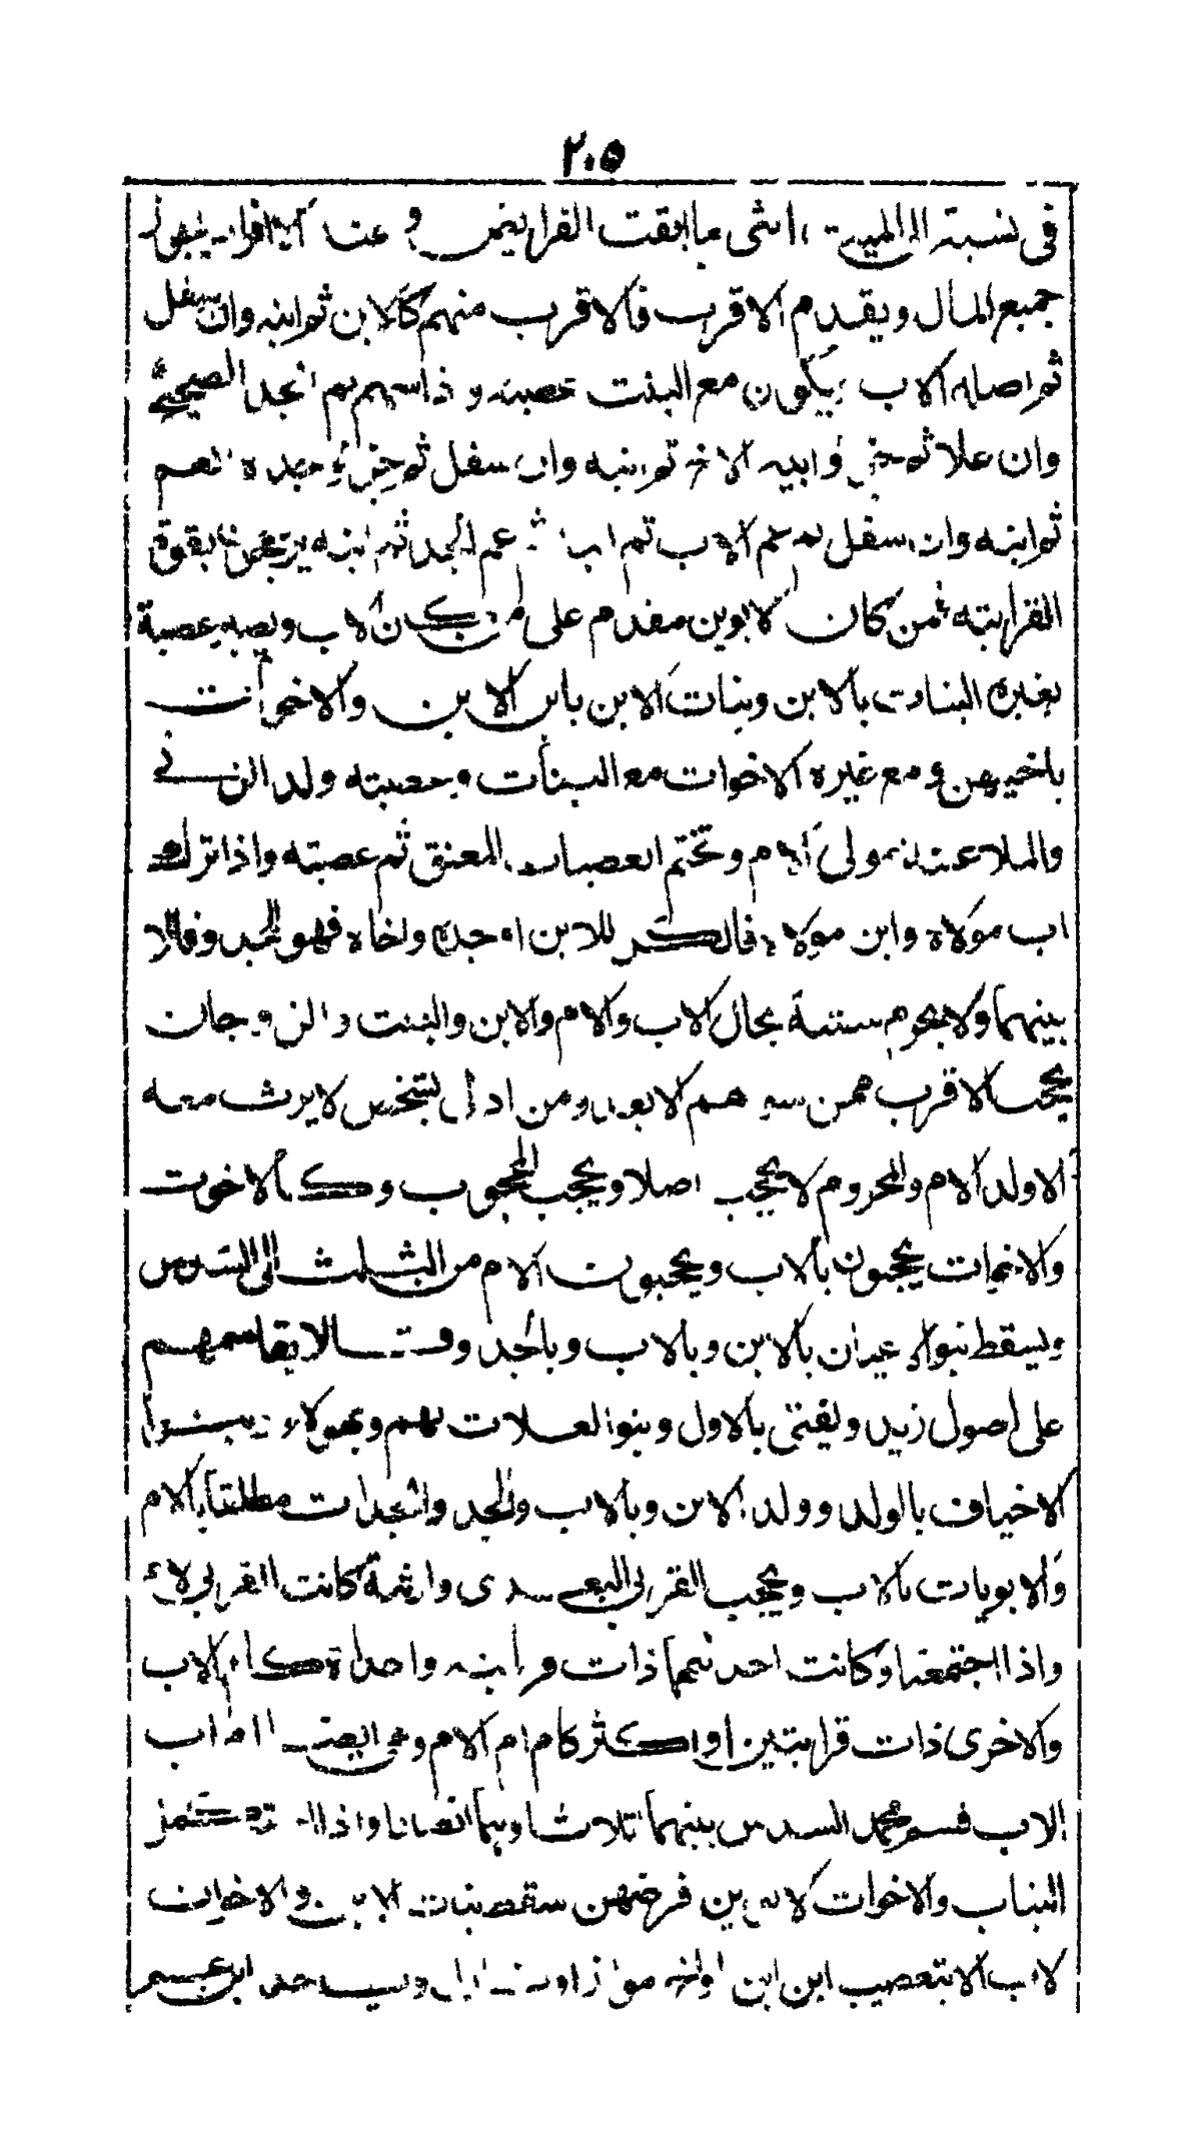 ٢٠٥
في نسبته الى الميت انثى ما ابقت الفرايض و عند الانفراد يحوز
جميع المال ويقدم الاقرب فالاقرب منهم كالابن ثم ابنه وان سفل
ثم اصله الاب ويكون مع البنت عصبة وذا سهم ثم الجد الصحيح
وان علا ثم جزؤ ابيه الاخ ثم ابنه وان سفل ثم جزؤ جده العم
ثم ابنه وان سفل ثم عم الاب ثم ابنه ثم عم الجد ثم ابنه يرجحون بقوة
القرابة فمن كان لابوين مقدم على من كان لاب ويصير عصبة
بغيره البنات بالابن وبنات الابن بابن الابن والاخوات
باخيهن ومع غيره الاخوات مع البنات وعصبة ولد الزنى
والملاعنة مولى الام وتختم العصبات بالمعتق ثم عصبته واذا ترك
اب مولاه وابن مولاه فالكل للابن او جده واخاه فهو للجد وقالا
بينهما ولا يحرم ستة بحال الاب والام والابن والبنت والزوجان
يحجب الاقرب ممن سواهم الابعد ومن ادلى بشخص لا يرث معه
الا ولد الام والمحروم لا يحجب اصلا ويحجب المحجوب كالاخوة
والاخوات يحجبون بالاب ويحجبون الام من الثلث الى السدس
ويسقط بنوا الاعيان بالابن وبالاب وبالجد وقالا يقاسمهم
على اصول زيد ويفتى بالاول وبنوا العلات بهم وبهؤلاء وبنوا
الاخياف بالولد وولد الابن وبالاب والجد والجدات مطلقا بالام
والابويات بالاب ويحجب القربى البعدى وارثة كانت القربى لا
واذا اجتمعتا وكانت احدهما ذات قرابة واحدة كام ام الاب
والاخرى ذات قرابتين او اكثر كام ام الام وهي ايضا ام اب
الاب قسم محمد السدس بينهما اثلاثا وهما انصافا واذا استكمل
البنات والاخوات لابوين فرضهن سقط بنات الابن والاخوات
لاب الا بتعصيب ابن ابن او اخ مواز او نازل وياخذ ابن عم